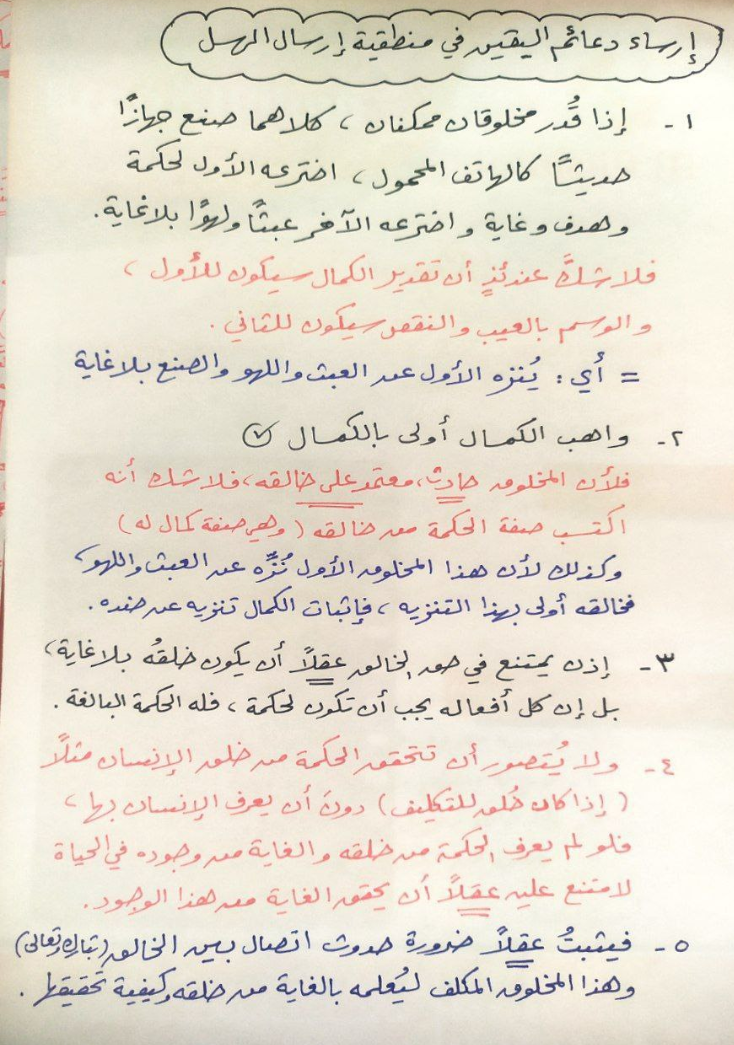 إرساء دعائم اليقين في منطقية إرسال الرسل
١- إذا قُدر مخلوقان ممكنان ، كلاهما صنع جهازًا
حديثًا كالهاتف المحمول ، اخترعه الأول لحكمة
وهدف وغاية واخترعه الآخر عبثًا ولهوًا بلا غاية.
فلا شكَّ عندئذٍ أن تقدير الكمال سيكون للأول ،
والوسم بالعيب والنقص سيكون للثاني .
= أي : يُنزه الأول عن العبث واللهو والصنع بلا غاية
٢- واهب الكمال أولى بالكمال ✓
فلأن المخلوق حادث، معتمد على خالقه، فلا شك أنه
اكتسب صفة الحكمة من خالقه ( وهي صفة كمال له )
وكذلك لأن هذا المخلوق الأول نُزِّه عن العبث واللهو،
فخالقه أولى بهذا التنزيه ، فإثبات الكمال تنزيه عن ضده.
٣- إذن يمتنع في حق الخالق عقلًا أن يكون خلقُه بلا غاية،
بل إن كل أفعاله يجب أن تكون لحكمة ، فله الحكمة البالغة .
٤- ولا يُتصور أن تتحقق الحكمة من خلق الإنسان مثلًا
( إذا كان خُلق للتكليف ) دونَ أن يعرف الإنسان بها ،
فلو لم يعرف الحكمة من خلقه والغاية من وجوده في الحياة
لامتنع عليه عقلًا أن يحقق الغاية من هذا الوجود .
٥- فيثبتُ عقلًا ضرورة حدوث اتصال بين الخالق (تبارك وتعالى)
وهذا المخلوق المكلف ليُعلمه بالغاية من خلقه وكيفية تحقيقها .